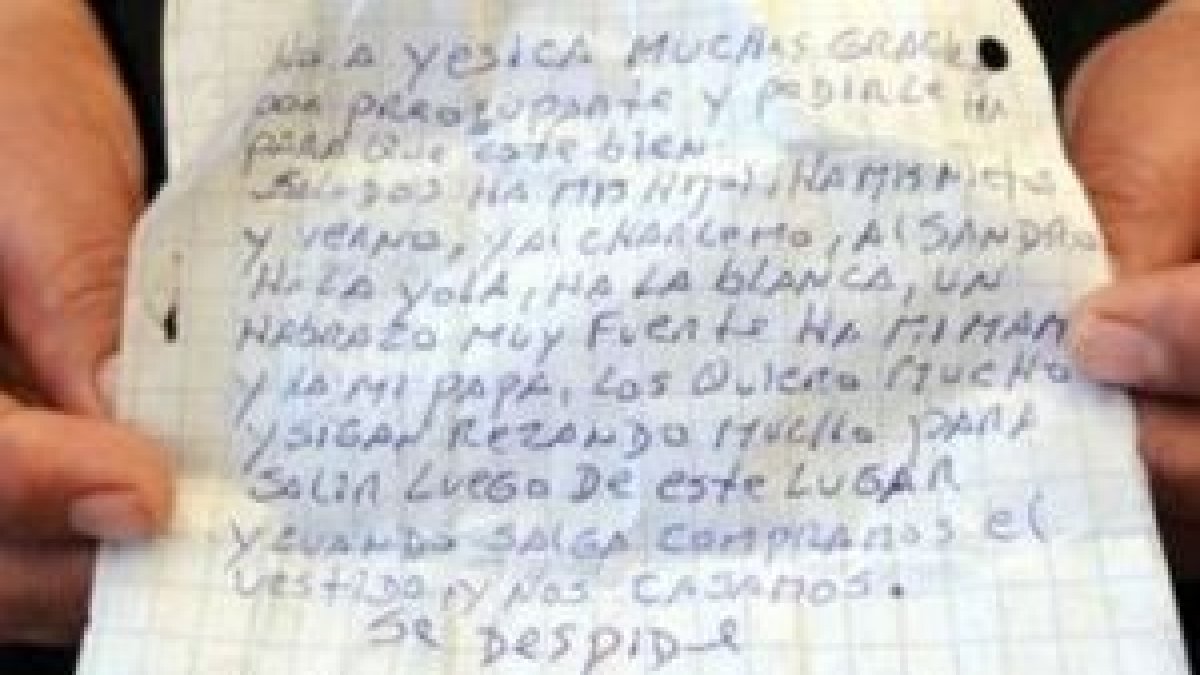 HA YESICA MUCHAS GRACI
POR PREOCUPARTE Y PEDIRLE
PARA QUE ESTE bIEN.
SALUDOS HA MIS HIJOS, HA MIS NIETO
Y YERNO, Y Al CHARLEMO, Al SANDRO
HA LA YOLA, HA LA bLANCA, UN
HABRAZO MUY FUERTE HA MI MAM
Y HA MI PAPA, LOS QUIERO MUCHO
Y SIGAN REZANDO MUCHO PARA
SALIR LUEGO De este LUGAR
Y CUANDO SALGA COMPRAMOS el
VESTIDO Y NOS CASAMOS.
Se DESPIDe